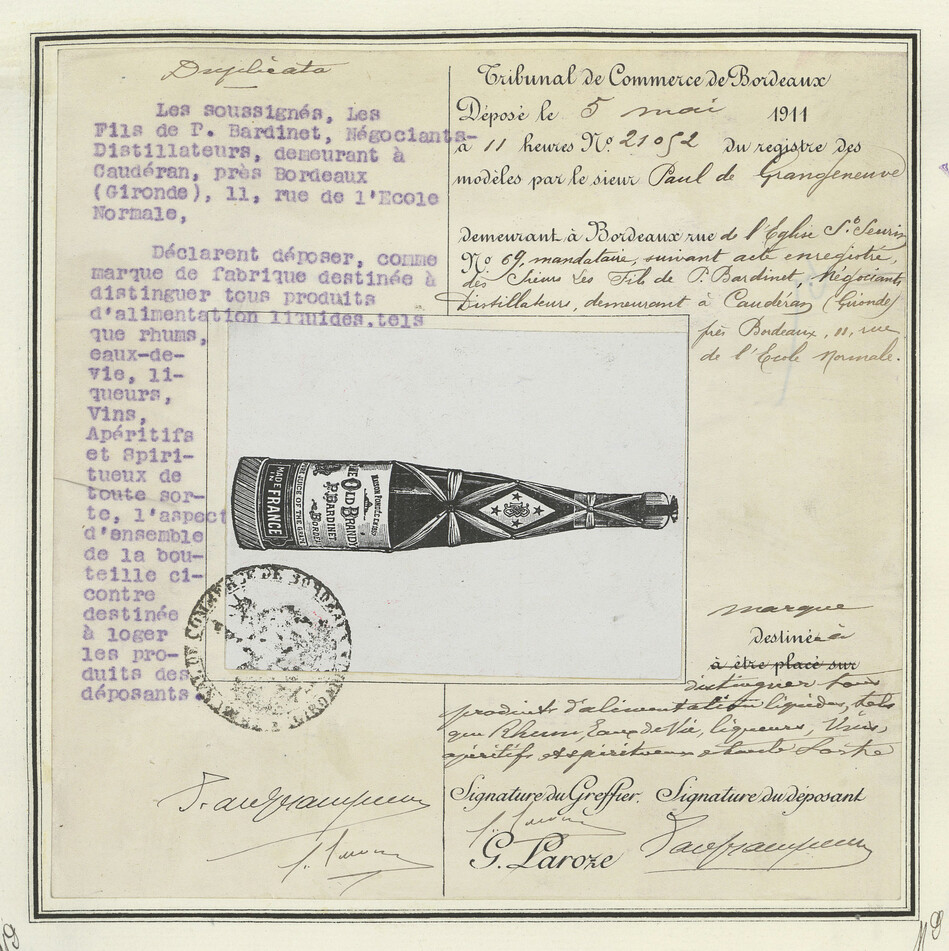 Duplicata
Les soussignés, Les
Fils de P. Bardinet, Négociants-
Distillateurs, demeurant à
Caudéran, près Bordeaux
(Gironde), 11, rue de l'Ecole
Normale,
Déclarent déposer, comme
marque de fabrique destinée à
distinguer tous produits
d'alimentation liquides, tels
que rhums,
eaux-de-
vie, li-
queurs,
Vins,
Apéritifs
et Spiri-
tueux de
toute sor-
te, l'aspect
d'ensemble
de la bou-
teille ci-
contre
destinée
à loger
les pro-
duits des
déposants.
Tribunal de Commerce de Bordeaux
Déposé le 5 mai 1911
à 11 heures No. 21052 du registre des
modèles par le sieur Paul de Grangeneuve
demeurant à Bordeaux rue de l'Eglise St. Seurin
No. 69, mandataire, suivant acte enregistré,
des Sieurs Les Fils de P. Bardinet, Négociants
Distillateurs, demeurant à Caudéran (Gironde)
près Bordeaux, 11, rue
de l'Ecole Normale.
MADE IN FRANCE
JUICE OF THE GRAPE
OLD BRANDY
P. BARDINET
BORDE
COMMERCE DE BORDEAUX
marque
destinée à
à être placé sur
distinguer tous
produits d'alimentation liquides, tels
que Rhums, Eaux de Vie, liqueurs, Vins,
apéritifs et spiritueux de toute Sorte
Signature du Greffier. Signature du déposant
G. Laroze